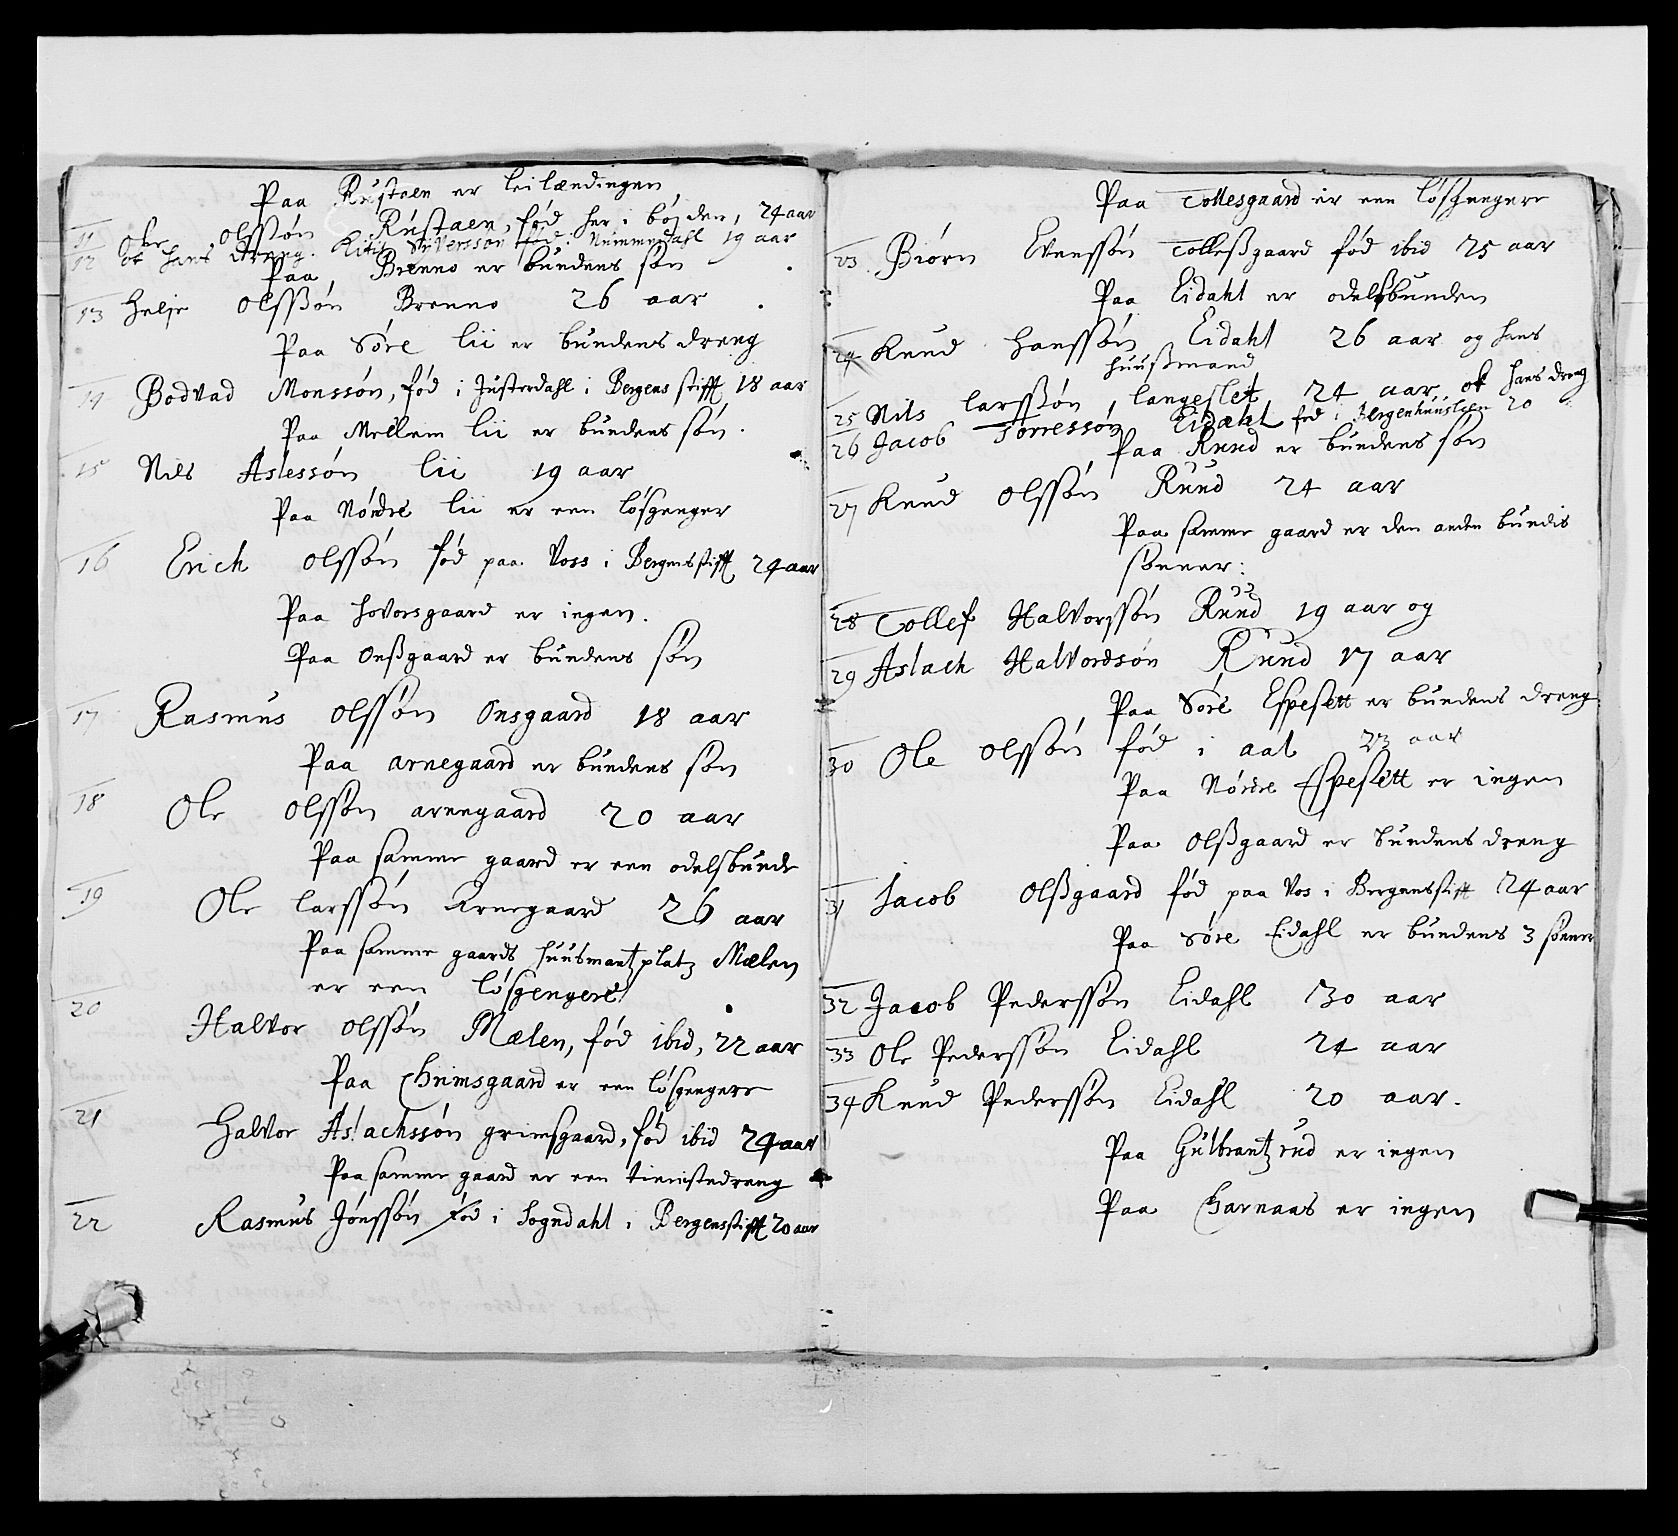 Paa Rustaen er leilændingen
11 Ole Olssøn Rustaen, fød her i bøjden, 24 aar
12 ok hans dreng. Sivverssøn fød i Nummendahl 19 aar
Paa Brenno er bundens søn
13 Helje Olssøn Brenno 26 aar
Paa Søre lii er bundens dreng
14 Bodvad Monssøn, fød i Justerdahl i Bergens stifft 18 aar
Paa Mellem lii er bundens søn.
15 Nils Aslessøn lii 19 aar
Paa Nørdre lii er een løsgenger
16 Erich Olssøn fød paa Voss i Bergensstifft 24 aar
Paa Hovorsgaard er ingen.
Paa Onsgaard er bundens søn
17 Rasmus Olssøn Onsgaard 18 aar
Paa arnegaard er bundens søn
18 Ole Olssøn arnegaard 20 aar
Paa samme gaard er een odelsbunde
19 Ole larssøn Arnegaard 26 aar
Paa samme gaards huusmantz platz Mælen
er een løsgengere
20 Halvor Olssøn Mælen, fød ibid, 22 aar
Paa Grimsgaard er een løsgengere
21 Halvor Aslachssøn grimsgaard, fød ibid 24 aar
Paa samme gaard er een tienistedreng
22 Rasmus Jønssøn fød i Sogndahl i Bergensstifft 20 aar
Paa Tollesgaard er een løsgengere
23 Biørn Evenssøn Tollessgaard fød ibid 25 aar
Paa Eidahl er odelsbunden
24 Knud Hanssøn Eidahl 26 aar og hans
huusmand
25 Nils larssøn, langeslet 24 aar ok hans dreng
26 Jacob Torressøn Eidahl fød i Bergenhuuslen 20
Paa Ruud er bundens søn
27 Knud Olssøn Ruud 24 aar
Paa samme gaard er den anden bundis
sønner:
28 Tollef Halvorssøn Ruud 19 aar og
29 Aslach Halvordsøn Ruud 17 aar
Paa Søre Espesett er bundens dreng
30 Ole Olssøn fød i aal 23 aar
Paa Nørdre Espesett er ingen
Paa Olssgaard er bundens dreng
31 Jacob Olssgaard fød paa Vos i Bergensstifft 24 aar
Paa Søre Eidahl er bundens 3 sønner
32 Jacob Pederssøn Eidahl 30 aar
33 Ole Pederssøn Eidahl 24 aar
34 Knud Pederssøn Eidahl 20 aar.
Paa Gulbrantzrud er ingen
Paa Garnaas er ingen